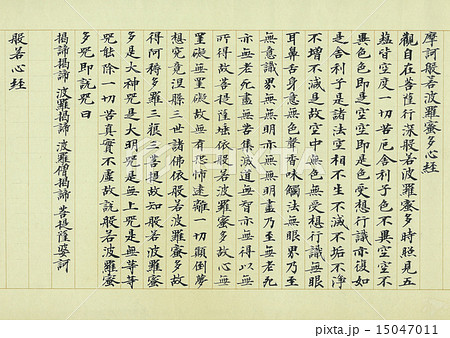 摩訶般若波羅蜜多心経
觀自在菩薩行深般若波羅蜜多時照見五
蘊皆空度一切苦厄舎利子色不異空空不
異色色即是空空即是色受想行識亦復如
是舎利子是諸法空相不生不滅不垢不浄
不増不減是故空中無色無受想行識無眼
耳鼻舌身意無色聲香味觸法無眼界乃至
無意識界無無明亦無無明盡乃至無老死
亦無老死盡無苦集滅道無智亦無得以無
所得故菩提薩埵依般若波羅蜜多故心無
罣礙無罣礙故無有恐怖遠離一切顛倒夢
想究竟涅槃三世諸佛依般若波羅蜜多故
得阿耨多羅三藐三菩提故知般若波羅蜜
多是大神咒是大明咒是無上咒是無等等
咒能除一切苦真實不虚故説般若波羅蜜
多咒即説咒曰
揭諦揭諦 波羅揭諦 波羅僧揭諦 菩提薩婆訶
般若心経
PIXTA
pixta.jp - 15047011